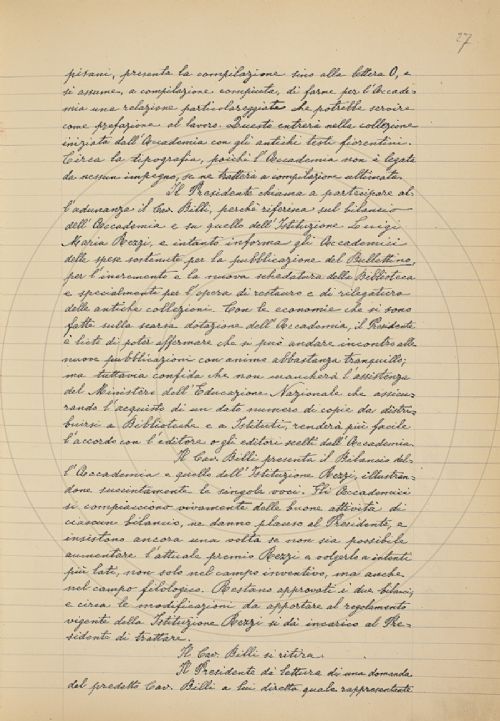 27
pisani, presenta la compilazione sino alla lettera O, e
si assume, a compilazione compiuta, di farne per l'Accade-
mia una relazione particolareggiata che potrebbe servire
come prefazione al lavoro. Questo entrerà nella collezione
iniziata dall'Accademia con gli antichi testi fiorentini.
Circa la tipografia, poichè l'Accademia non è legata
da nessun impegno, se ne tratterà a compilazione ultimata.
Il Presidente chiama a partecipare al-
l'adunanza il Cav. Billi, perchè riferisca sul bilancio
dell'Accademia e su quello dell'Istituzione Luigi
Maria Rezzi, e intanto informa gli Accademici
delle spese sostenute per la pubblicazione del Bollettino,
per l'incremento e la nuova schedatura della Biblioteca
e specialmente per l'opera di restauro e di rilegatura
delle antiche collezioni. Con le economie che si sono
fatte sulla scarsa dotazione dell'Accademia, il Presidente
è lieto di poter affermare che si può andare incontro alle
nuove pubblicazioni con animo abbastanza tranquillo;
ma tuttavia confida che non mancherà l'assistenza
del Ministero dell'Educazione Nazionale che assicu-
rando l'acquisto di un dato numero di copie da distri-
buirsi a Biblioteche e a Istituti, renderà più facile
l'accordo con l'editore o gli editori scelti dall'Accademia.
Il Cav. Billi presenta il Bilancio del-
l'Accademia e quello dell'Istituzione Rezzi, illustran-
done succintamente le singole voci. Gli Accademici
si compiacciono vivamente delle buone attività di
ciascun bilancio, ne danno plauso al Presidente, e
insistono ancora una volta se non sia possibile
aumentare l'attuale premio Rezzi e volgerlo a intenti
più lati, non solo nel campo inventivo, ma anche
nel campo filologico. Restano approvati i due bilanci,
e circa le modificazioni da apportare al regolamento
vigente della Istituzione Rezzi si dà incarico al Pre-
sidente di trattare.
Il Cav. Billi si ritira.
Il Presidente dà lettura di una domanda
del predetto Cav. Billi a lui diretta quale rappresentante